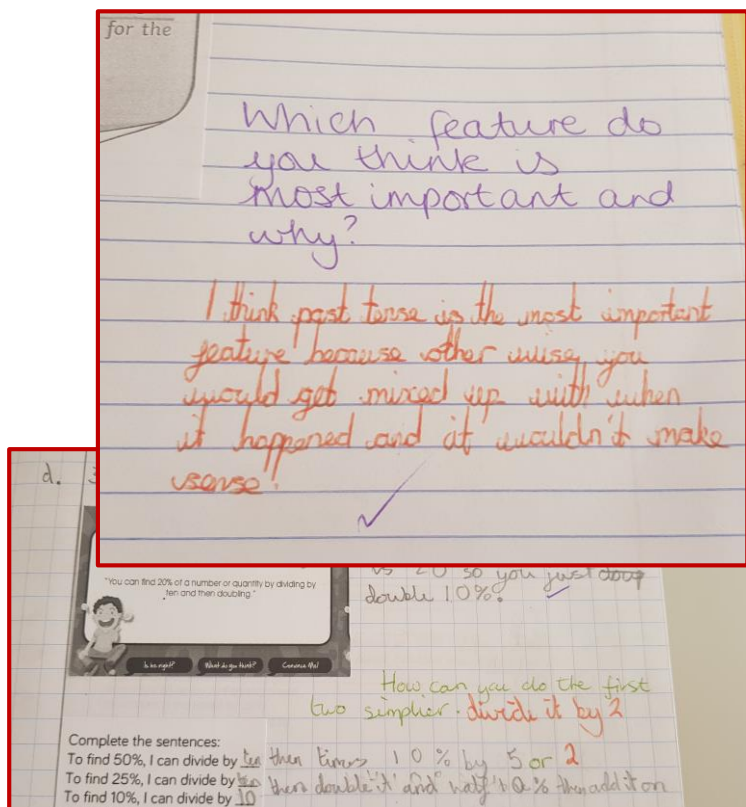 for the
Which feature do
you think is
most important and
why?
I think past tense is the most important
feature because other wise you
would get mixed up with when
it happened and it wouldn't make
sense!
d.
"You can find 20% of a number or quantity by dividing by
ten and then doubling."
Is he right? What do you think? Convince Me!
is 20 so you just
double 10%.
How can you do the first
two simpler. divide it by 2
Complete the sentences:
To find 50%, I can divide by ten then times 10% by 5 or 2
To find 25%, I can divide by ten then double it and half 10% then add it on
To find 10%, I can divide by 10